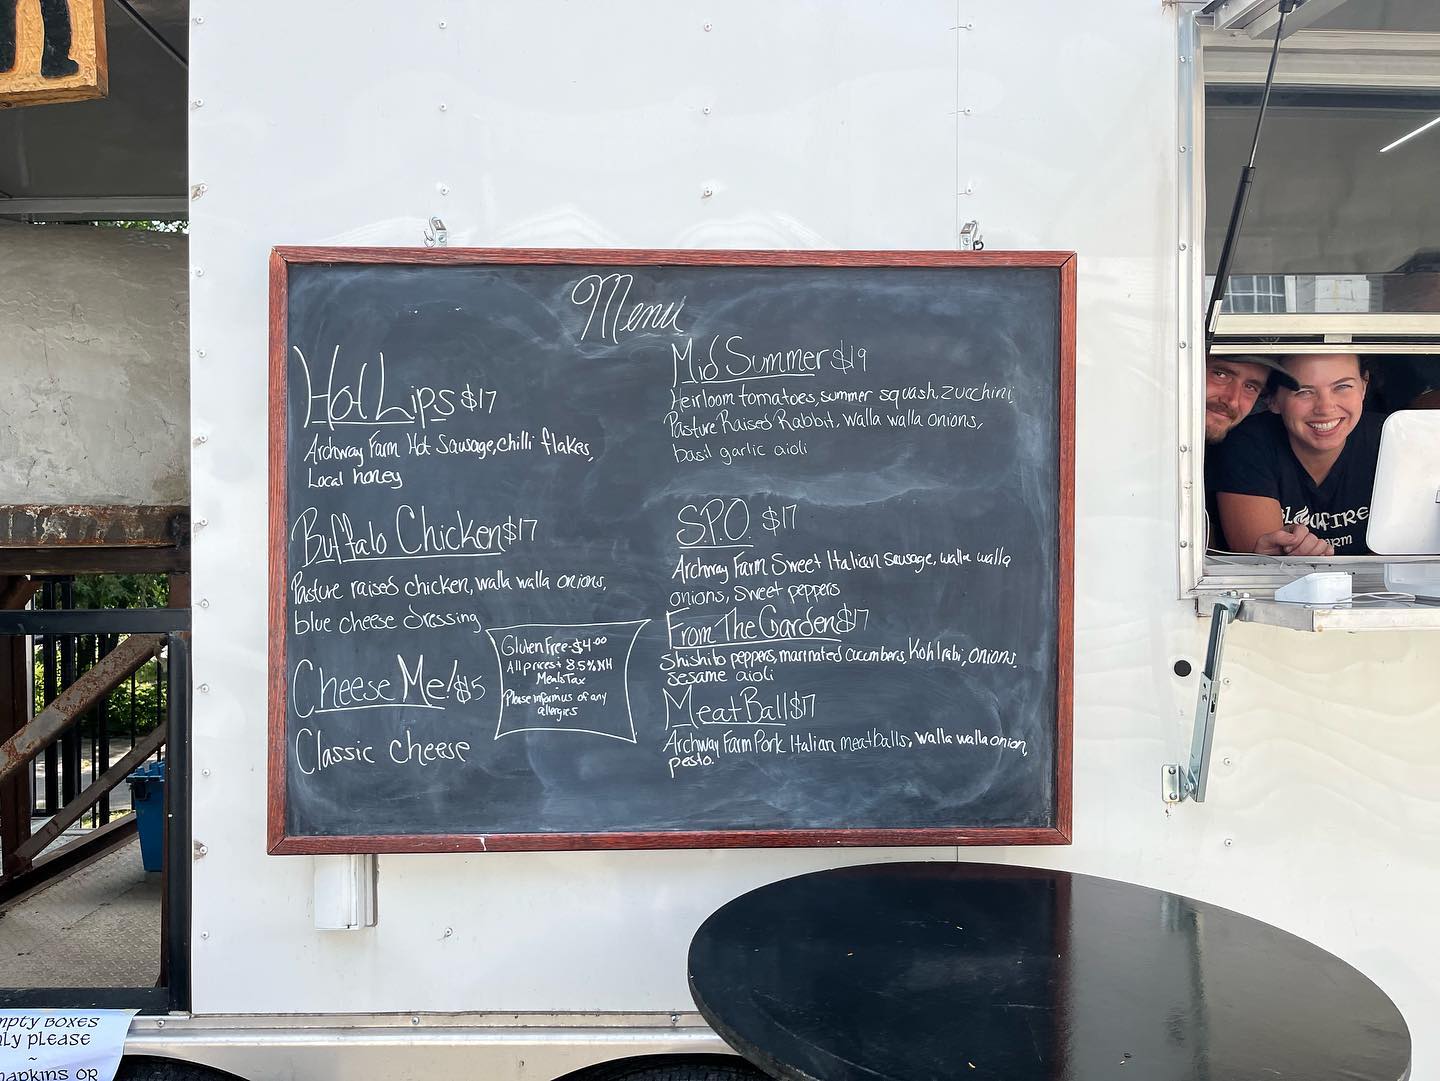 Menu
Hot Lips $17
Archway Farm Hot Sausage, chilli flakes,
Local honey
Buffalo Chicken $17
Pasture raised chicken, walla walla onions,
blue cheese dressing
Cheese Me! $5
Classic cheese
Gluten Free - $4.00
All prices + 8.5% NH
Meals Tax
-
Please inform us of any
allergies
Mid Summer $19
Heirloom tomatoes, summer squash, zucchini,
Pasture Raised Rabbit, walla walla onions,
basil garlic aioli
S.P.O. $17
Archway Farm Sweet Italian sausage, walla walla
onions, sweet peppers
From The Garden $17
Shishito peppers, marinated cucumbers, Kohlrabi, onions,
sesame aioli
Meat Ball $17
Archway Farm Pork Italian meatballs, walla walla onion,
pesto.
FIRE
ARM
MPTY BOXES
LY PLEASE
~
NAPKINS OR